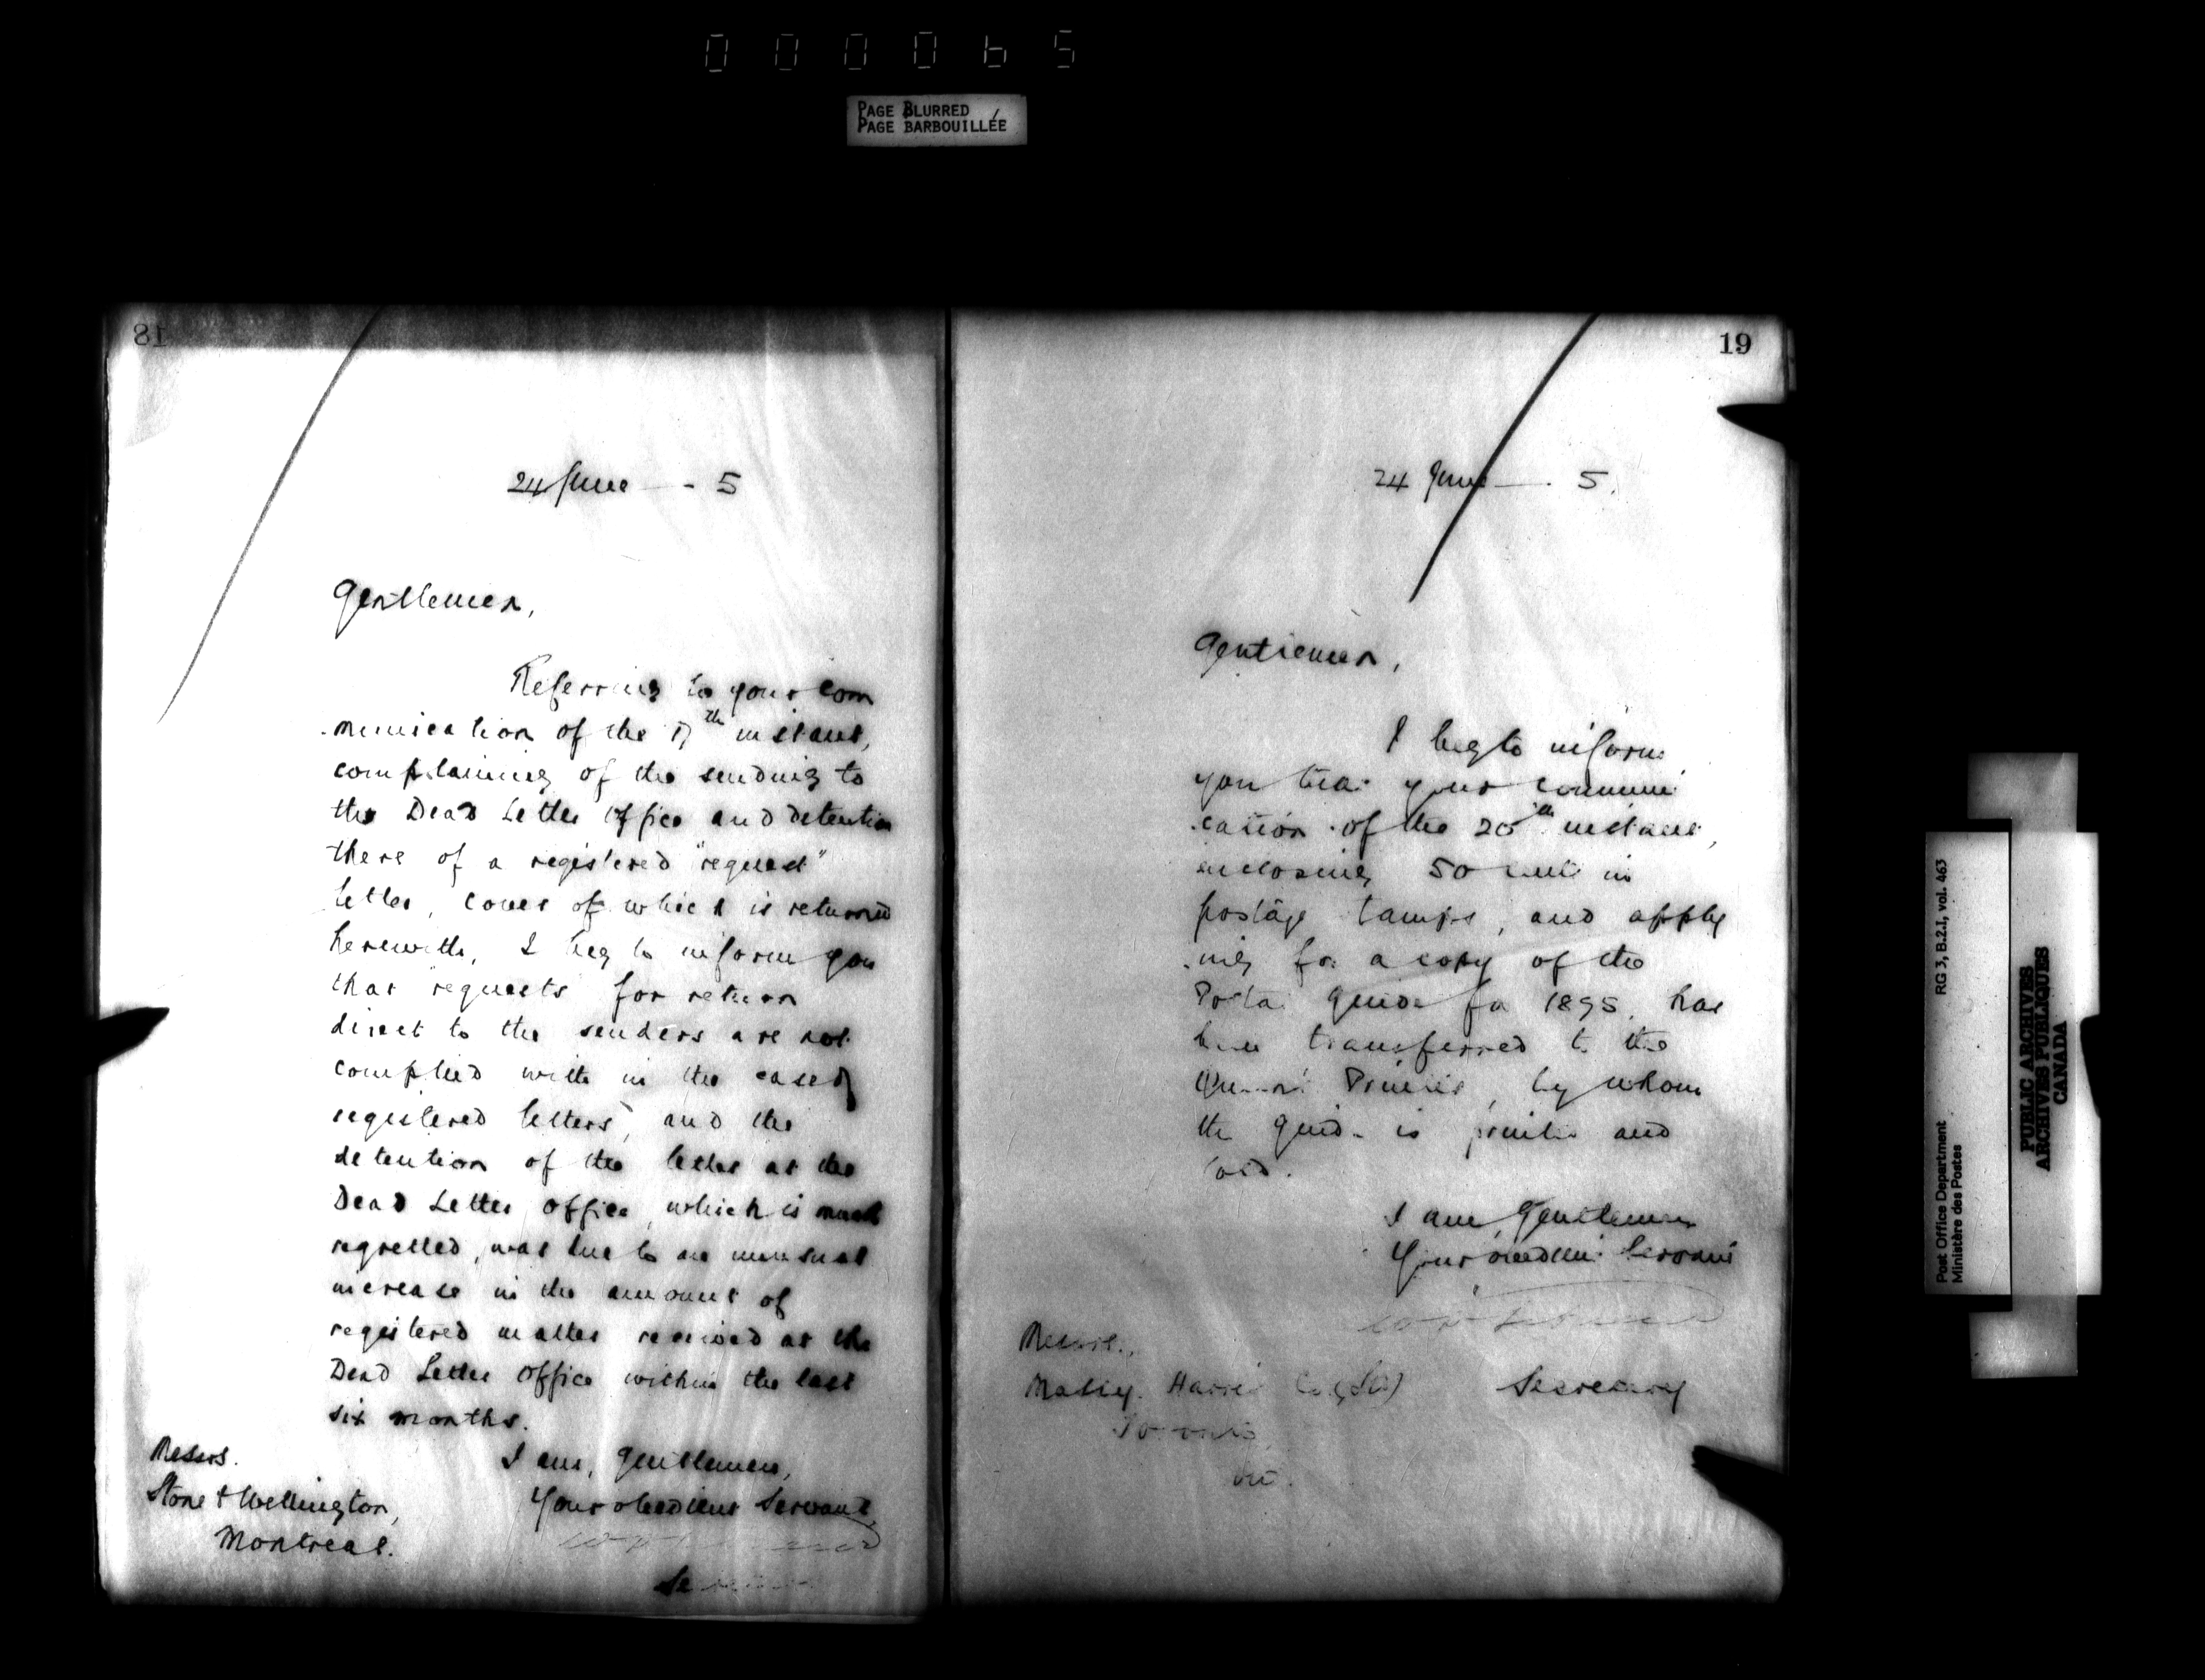 000065
PAGE BLURRED
PAGE BARBOUILLÉE
18
24 June - 5
Gentlemen,
Referring to your com
munication of the 17th instant,
complaining of the sending to
the Dead Letter Office and detention
there of a registered "request"
letter, cover of which is returned
herewith, I beg to inform you
that "requests" for return
direct to the senders are not
complied with in the case of
registered letters, and the
detention of the letter at the
Dead Letter Office, which is much
regretted, was due to an unusual
increase in the amount of
registered matter received at the
Dead Letter Office within the last
six months.
I am, Gentlemen,
Your obedient Servant,
Messrs.
Stone & Wellington,
Montreal.
19
24 June - 5.
Gentlemen,
I beg to inform
you that your communi
cation of the 20th instant,
enclosing 50 cents in
postage stamps, and apply
ing for a copy of the
Postal Guide for 1895, has
been transferred to the
Queen's Printer, by whom
the Guide is printed and
sold.
I am, Gentlemen
Your obedient Servant
Secretary
Messrs.
Massey Harris Co. (Ltd)
Toronto,
Ont.
Post Office Department
Ministère des Postes
RG 3, B.2.I, vol. 463
PUBLIC ARCHIVES
ARCHIVES PUBLIQUES
CANADA